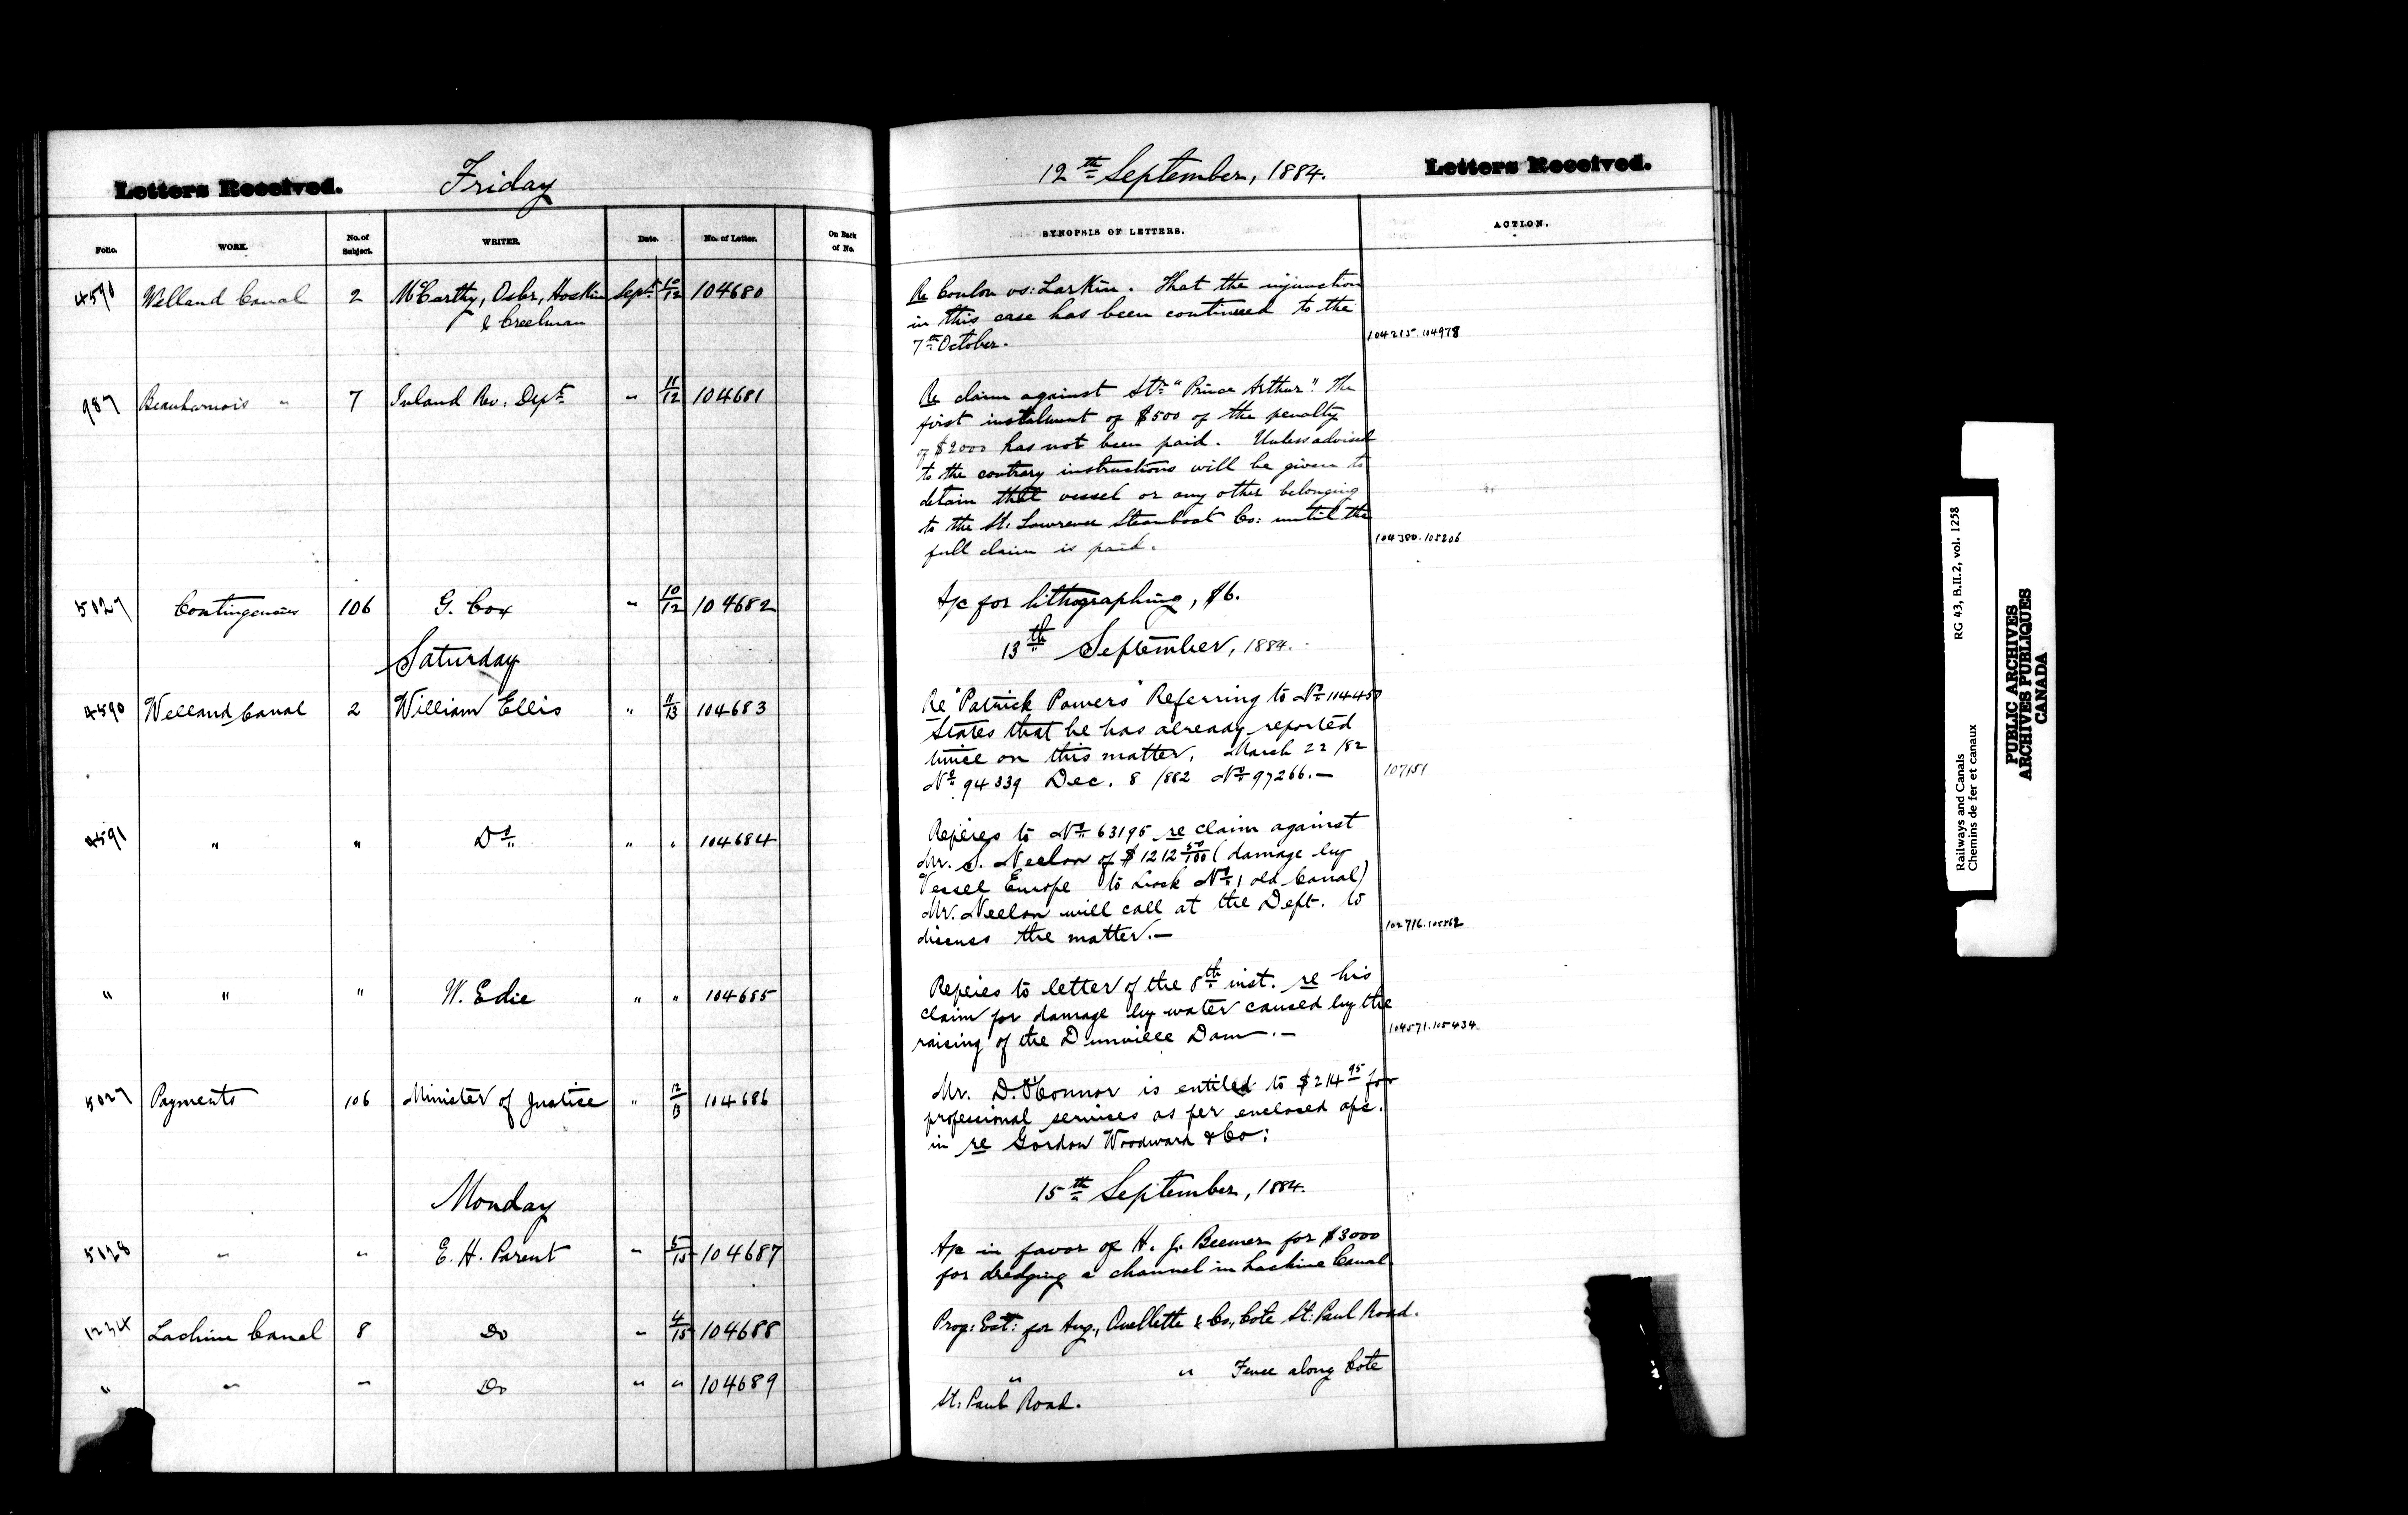 Letters Received. Friday 12th September, 1884. Letters Received.
Folio. WORK. No. of Subject. WRITER. Date. No. of Letter. On Back of No. SYNOPSIS OF LETTERS. ACTION.
4590 Welland Canal 2 McCarthy, Osler, Hoskin Sept. 10/12 104680 Re Conlon vs: Larkin. That the injunction
& Creelman in this case has been continued to the
7th October. 104215.104978
987 Beauharnois " 7 Inland Rev. Dept. " 11/12 104681 Re claim against Str. "Prince Arthur". The
first instalment of $500 of the penalty
of $2000 has not been paid. Unless advised
to the contrary instructions will be given to
detain that vessel or any other belonging
to the St. Lawrence Steamboat Co: until the
full claim is paid. 104380.105206
5027 Contingencies 106 G. Cox " 10/12 104682 A/c for lithographing, $6.
Saturday 13th September, 1884.
4590 Welland Canal 2 William Ellis " 11/13 104683 Re "Patrick Powers" Referring to No 104450
States that he has already reported
twice on this matter. March 22/82
No 94339 Dec. 8/882 No 97266.—
107151
4591 " " Do " " 104684 Replies to No 63195 re claim against
Mr. S. Neelon of $1212 50/100 (damage by
Vessel Europe to Lock No 1 old Canal)
Mr. Neelon will call at the Dept. to
discuss the matter.— 102716.105562
" " " W. Edie " " 104685 Replies to letter of the 8th inst. re his
claim for damage by water caused by the
raising of the Dunville Dam.— 104571.105434
5027 Payments 106 Minister of Justice " 12/13 104686 Mr. D. O'Connor is entitled to $214 95 for
professional services as per enclosed a/c.
in re Gordon Woodward & Co:
Monday 15th September, 1884.
5028 " " E. H. Parent " 5/15 104687 A/c in favor of H. J. Beemer for $3000
for dredging a channel in Lachine Canal
1234 Lachine Canal 8 Do " 4/15 104688 Prog: Est: for Aug., Ouellette & Co., Cote St: Paul Road.
" " " Do " " 104689 " " Fence along Cote
St: Paul Road.
Railways and Canals RG 43, B.II.2, vol. 1258
Chemins de fer et canaux
PUBLIC ARCHIVES
ARCHIVES PUBLIQUES
CANADA